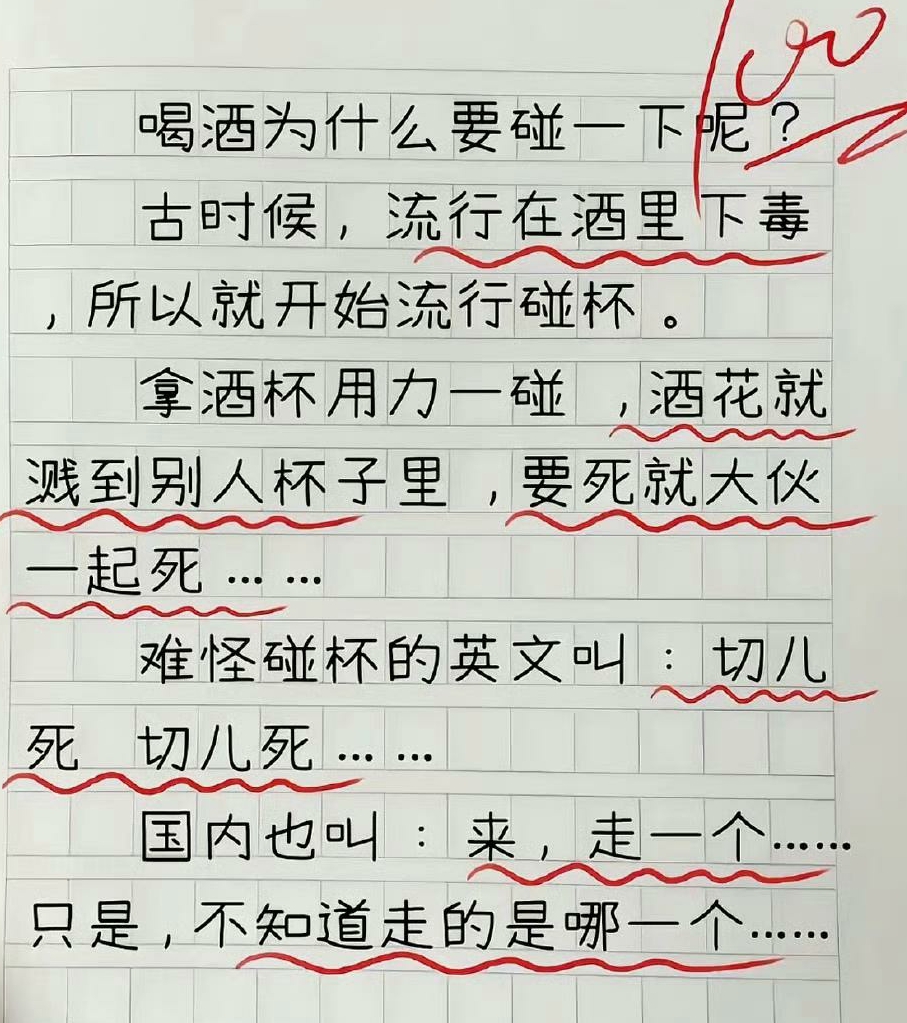 100
喝酒为什么要碰一下呢？
古时候，流行在酒里下毒
，所以就开始流行碰杯。
拿酒杯用力一碰，酒花就
溅到别人杯子里，要死就大伙
一起死……
难怪碰杯的英文叫：切儿
死 切儿死……
国内也叫：来，走一个……
只是，不知道走的是哪一个……